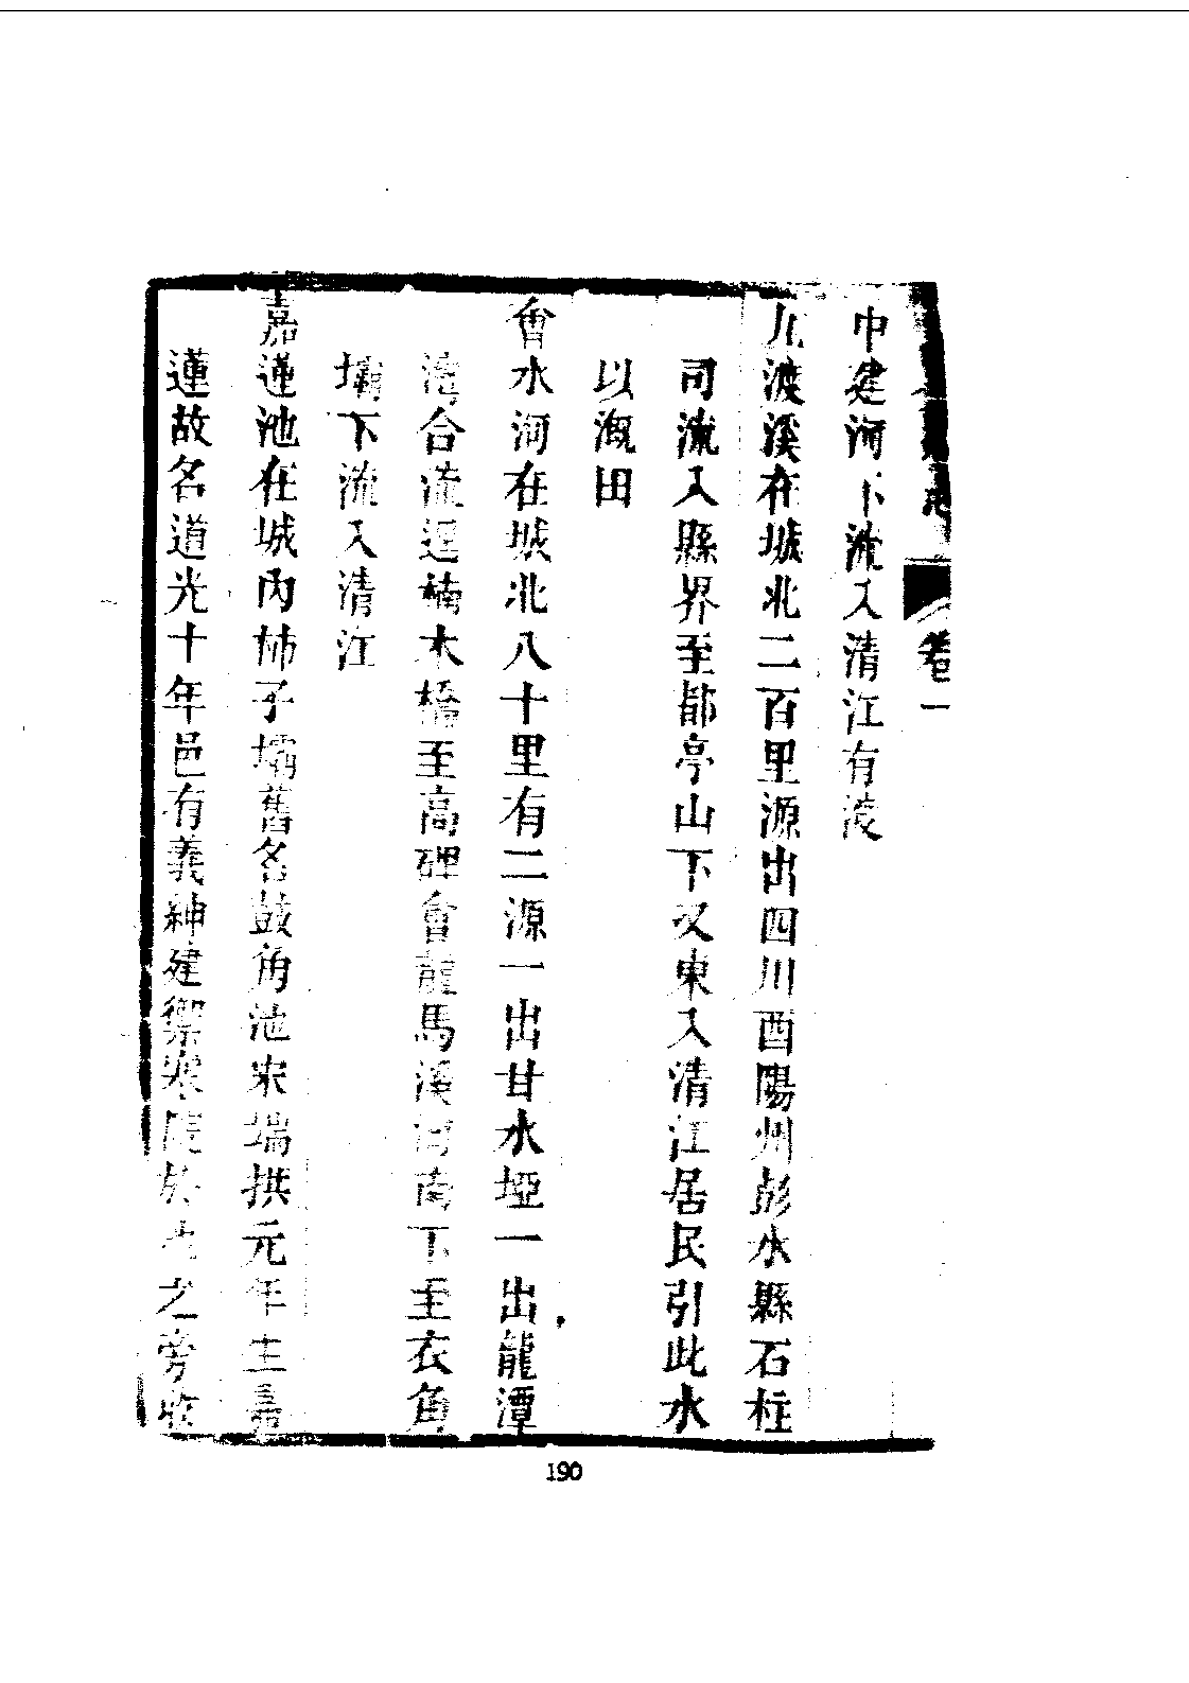 志 卷一
中建河下流入清江有淩
九渡溪在城北二百里源出四川酉陽州彭水縣石柱
司流入縣界至都亭山下又東入清江居民引此水
以溉田
會水河在城北八十里有二源一出甘水埡一出龍潭
灣合流逕楠木橋至高碑會龍馬溪河南下至衣角
壩下流入清江
嘉蓮池在城內柿子壩舊名鼓角池宋端拱元年生嘉
蓮故名道光十年邑有義紳建禦寒院於池之旁收
190